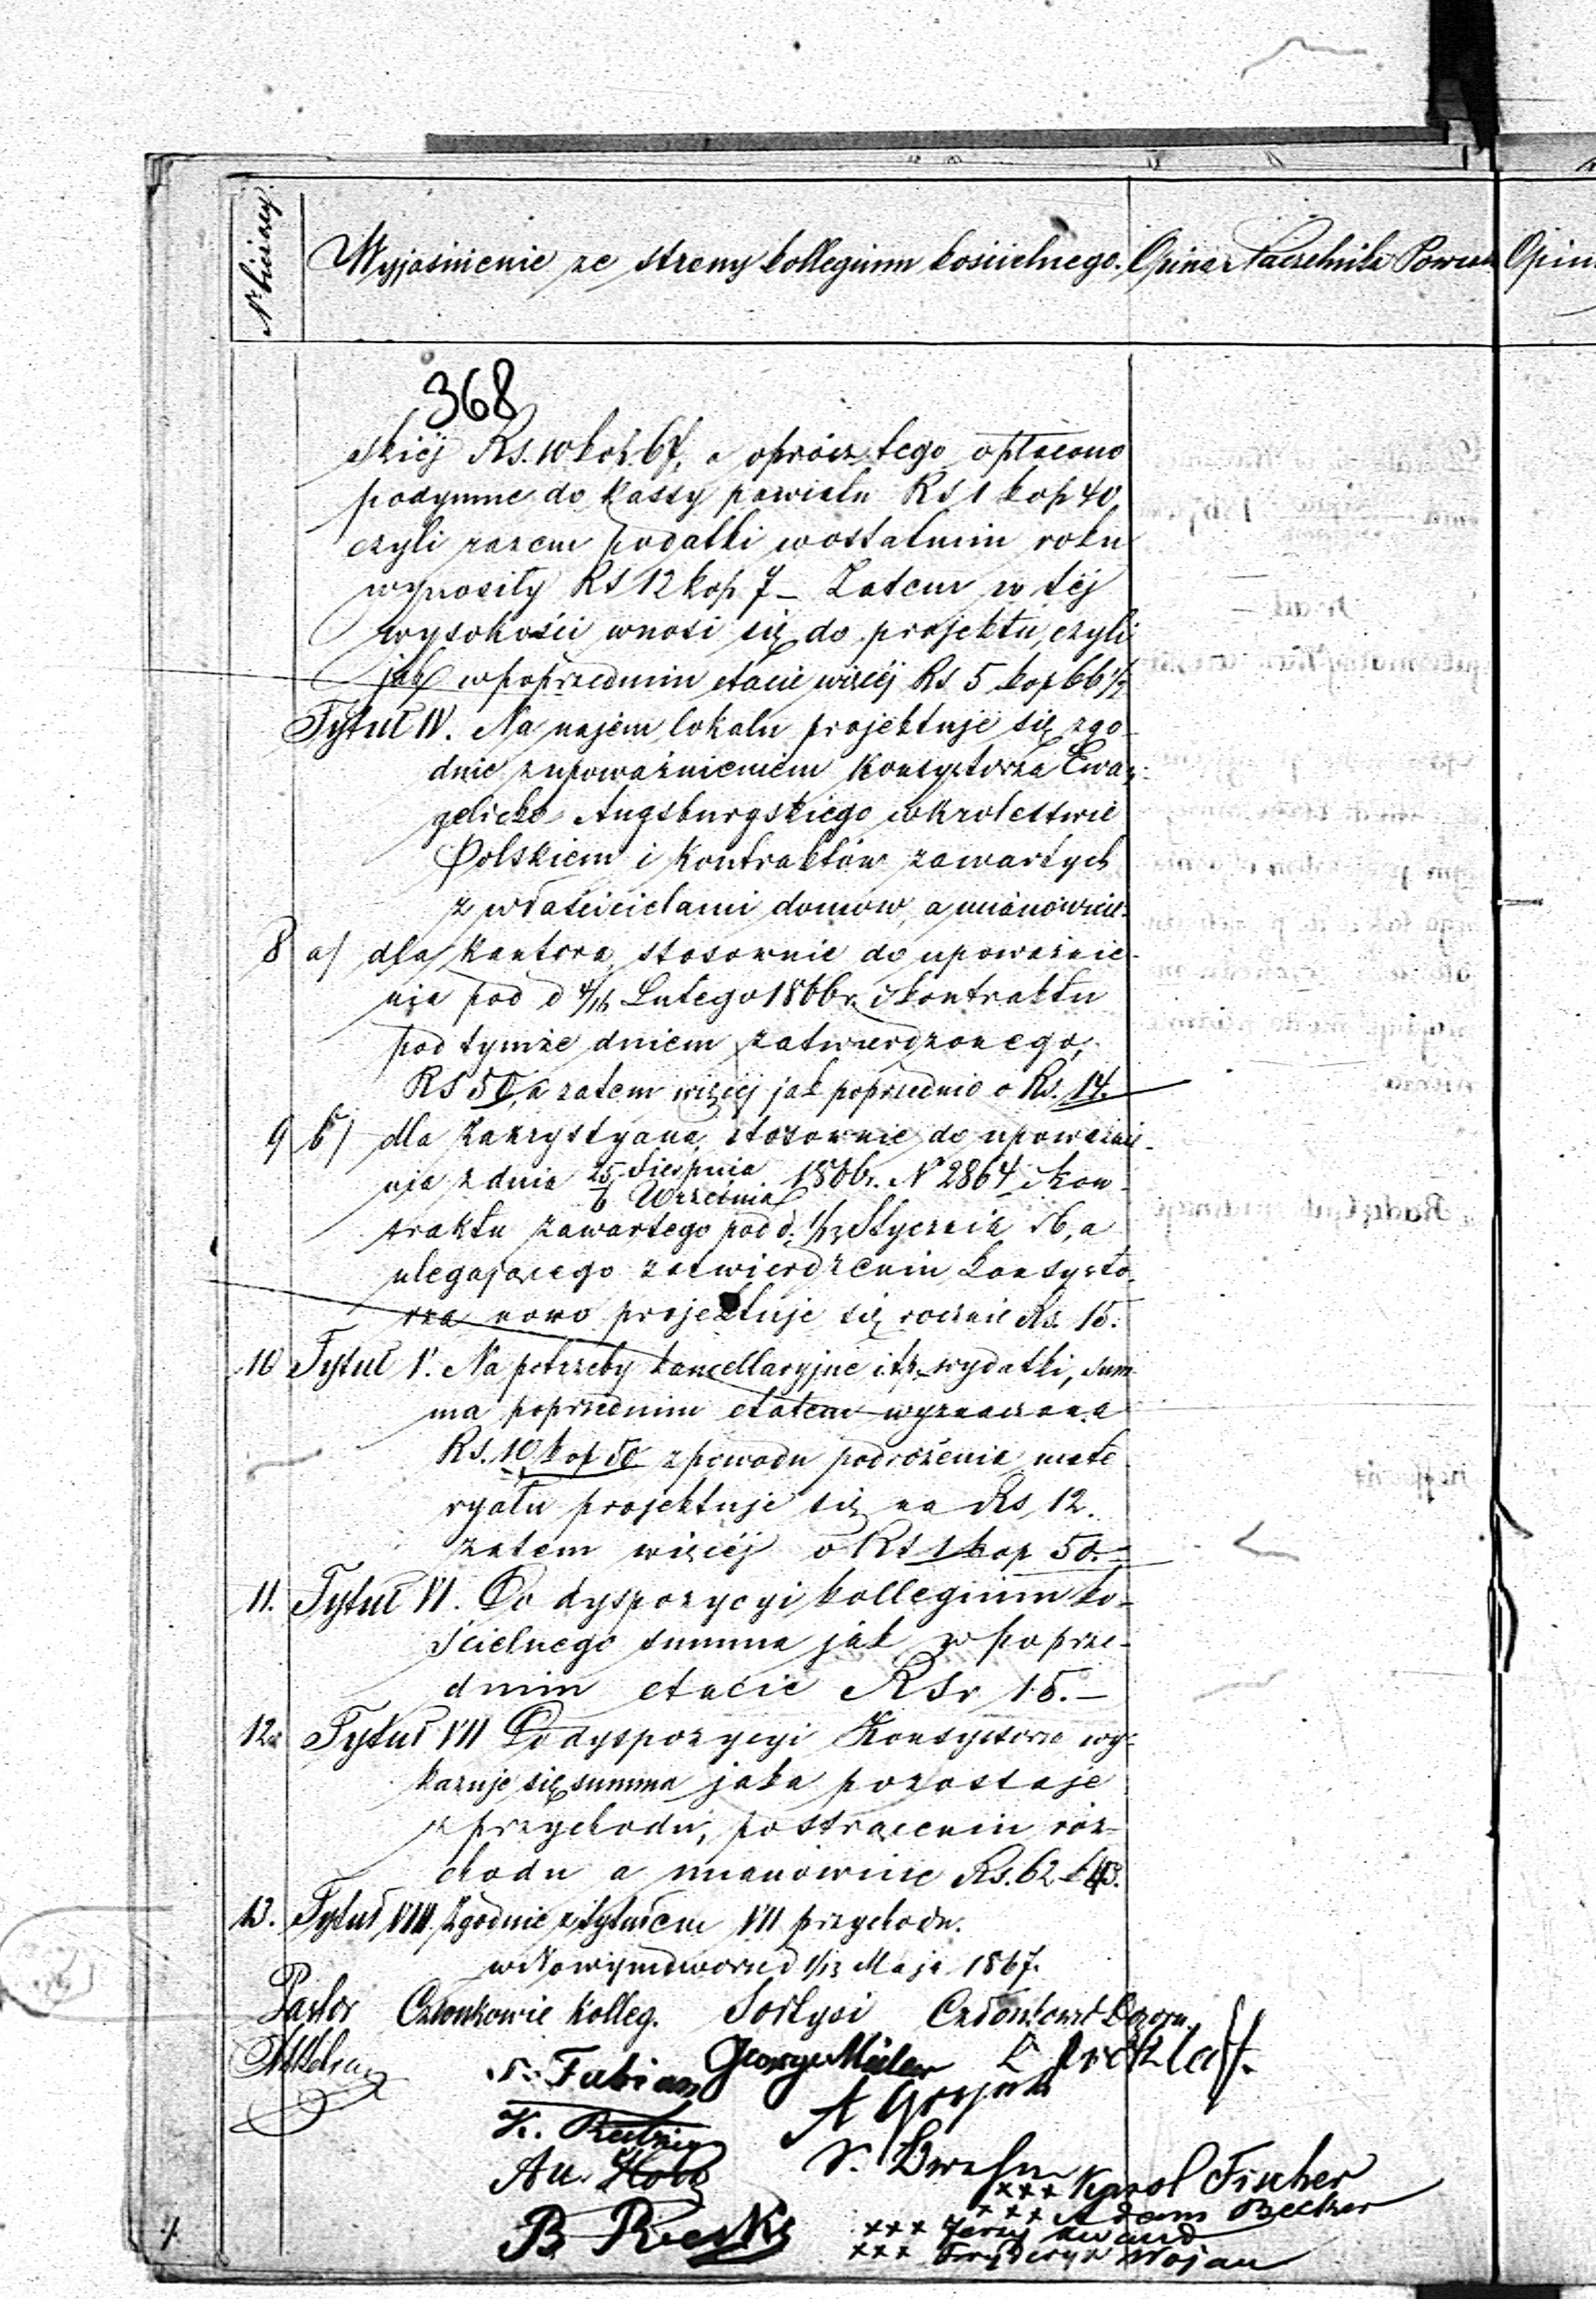 N bieżący
Wyjaśnienie ze strony kollegium kościelnego.
Opinia Naczelnika Powiatu
Opini
368
skiéj Rs. 10 kop. 67, a oprócz tego opłacono
podymne do kassy powiatu Rs 1 kop 40
czyli razem podatki w ostatnim roku
wynosiły Rs 12 kop 7 – Zatem w téj
wysokości wnosi się do projektu, czyli
jak w poprzednim etacie więcéj Rs 5 kop 66 1/2
Tytuł IV. Na najem lokalu projektuje się zgo-
dnie z upoważnieniem Konsystorza Ewan-
gelicko Augsburgskiego w Królestwie
Polskiem i kontraktów zawartych
z właścicielami domów, a mianowicie:
8 a/ dla kantora stosownie do upoważnie-
nia pod d 4/16 Lutego 1866 r. i kontraktu
pod tymże dniem zatwierdzonego,
RS 50, a zatem więcéj jak poprzednio o Rs. 14.
9 b/ dla zakrystyana stosownie do upoważnie-
nia z dnia 25 Sierpnia / 6 Września 1866 r. N 2864 i kon-
traktu zawartego pod d. 1/13 Stycznia rb, a
ulegającego zatwierdzeniu Konsysto-
rza nowo projektuje się rocznie Rs. 15.
10 Tytuł V. Na potrzeby kancellaryjne i t.p. wydatki, sum-
ma poprzednim etatem wyznaczona
Rs. 10 kop 50 z powodu podrożenia mate-
ryału projektuje się na Rs 12.
zatem więcéj o Rs 1 kop 50.
11. Tytuł VI. Do dyspozycyi kollegium ko-
ścielnego summa jak w poprze-
dnim etacie RSr 15.–
12. Tytuł VII Do dyspozycyi Konsystorza wy-
kazuje się summa jaka pozostaje
z przychodu, po strąceniu roz-
chodu a mianowicie Rs. 62 k 43.
13. Tytuł VIII. Zgodnie z tytułem VII przychodu.
w Nowymdworze d 1/13 Maja 1867.
Pastor Członkowie Kolleg. Sołtysi Członkowie Dozoru
Fabian George Müller
K.
Au.
B
xxx Karol Fischer
xxx Adam Becker
xxx Jerzy
xxx Fryderyk Wojan